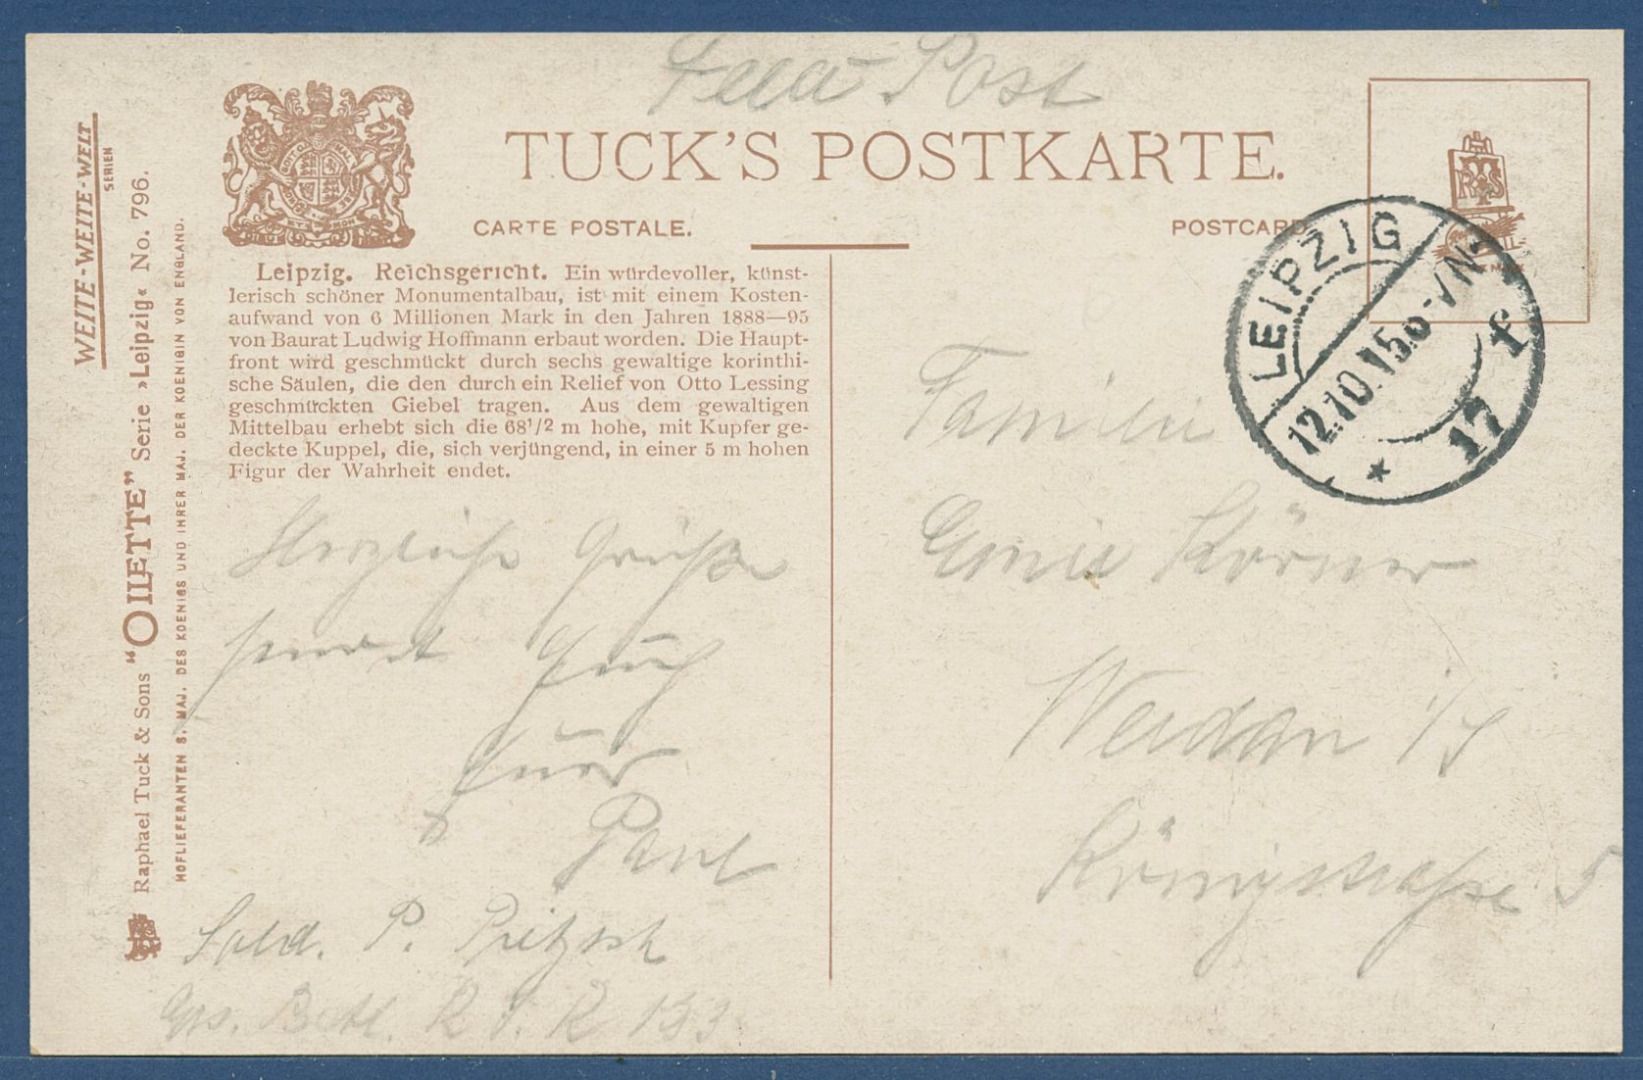 Feld-Post
TUCK'S POSTKARTE.
CARTE POSTALE.
POSTCARD
WEITE-WEITE-WELT
SERIEN
Raphael Tuck & Sons "OILETTE" Serie »Leipzig« No. 796.
HOFLIEFERANTEN S. MAJ. DES KOENIGS UND IHRER MAJ. DER KOENIGIN VON ENGLAND.
Leipzig. Reichsgericht. Ein würdevoller, künst-
lerisch schöner Monumentalbau, ist mit einem Kosten-
aufwand von 6 Millionen Mark in den Jahren 1888—95
von Baurat Ludwig Hoffmann erbaut worden. Die Haupt-
front wird geschmückt durch sechs gewaltige korinthi-
sche Säulen, die den durch ein Relief von Otto Lessing
geschmückten Giebel tragen. Aus dem gewaltigen
Mittelbau erhebt sich die 68 1/2 m hohe, mit Kupfer ge-
deckte Kuppel, die, sich verjüngend, in einer 5 m hohen
Figur der Wahrheit endet.
Herzliche Grüße
sendet Euch
Euer
Paul
Sold. P. Pritzsch
R. I. R 133
LEIPZIG
12.10.15.6-7N
* 17 f
Familie
Emil Körner
Werdau i/S
Königstraße 5